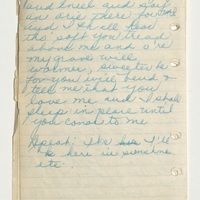 and kneel and say
an ave there for me
And I shall hear
tho soft you tread
above me and o're
my grave will
warmer, sweeter be
for you will bend &
tell me that you
love me and I shall
sleep in peace until
you come to me
I'll
be here in sunshine
etc.